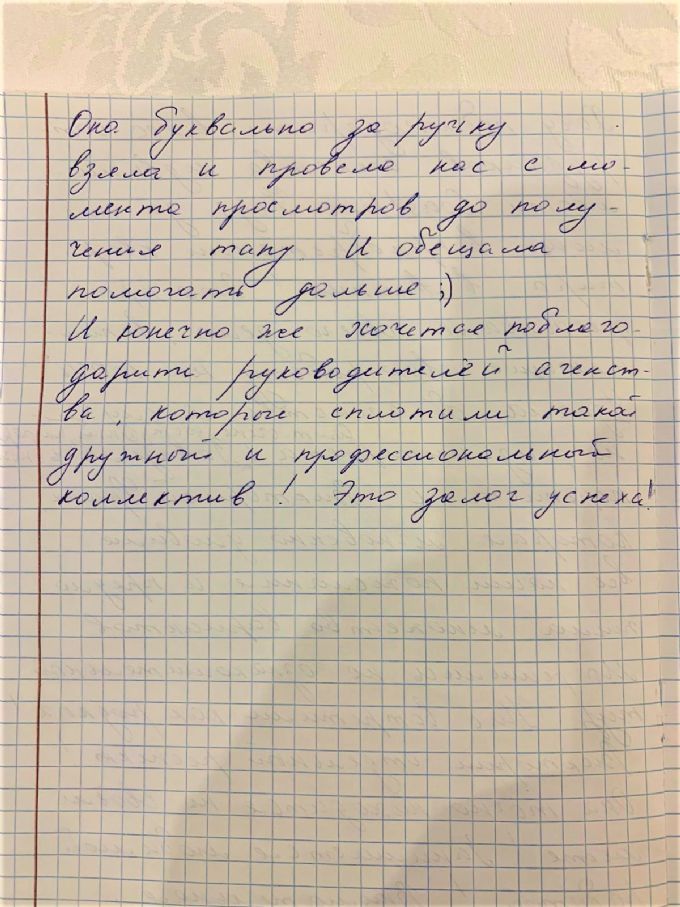 Она буквально за ручку
взяла и провела нас с мо-
мента просмотров до полу-
чения тапу. И обещала
помогать дальше ;)
И конечно же хочется поблаго-
дарить руководителей агенст-
ва, которые сплотили такой
дружный и профессиональный
коллектив! Это залог успеха!